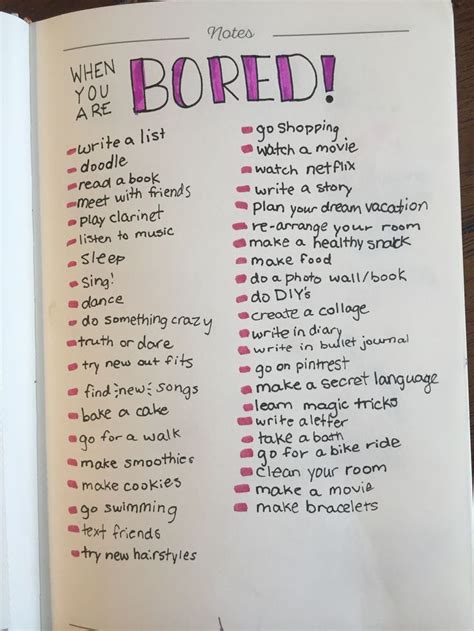 Notes
WHEN
YOU
ARE
BORED!
write a list
doodle
read a book
meet with friends
play clarinet
listen to music
sleep
sing!
dance
do something crazy
truth or dare
try new out fits
find new songs
bake a cake
go for a walk
make smoothies
make cookies
go swimming
text friends
try new hairstyles
go shopping
watch a movie
watch netflix
write a story
plan your dream vacation
re-arrange your room
make a healthy snack
make food
do a photo wall/book
do DIY's
create a collage
write in diary
write in bullet journal
go on pintrest
make a secret language
learn magic tricks
write a letter
take a bath
go for a bike ride
clean your room
make a movie
make bracelets